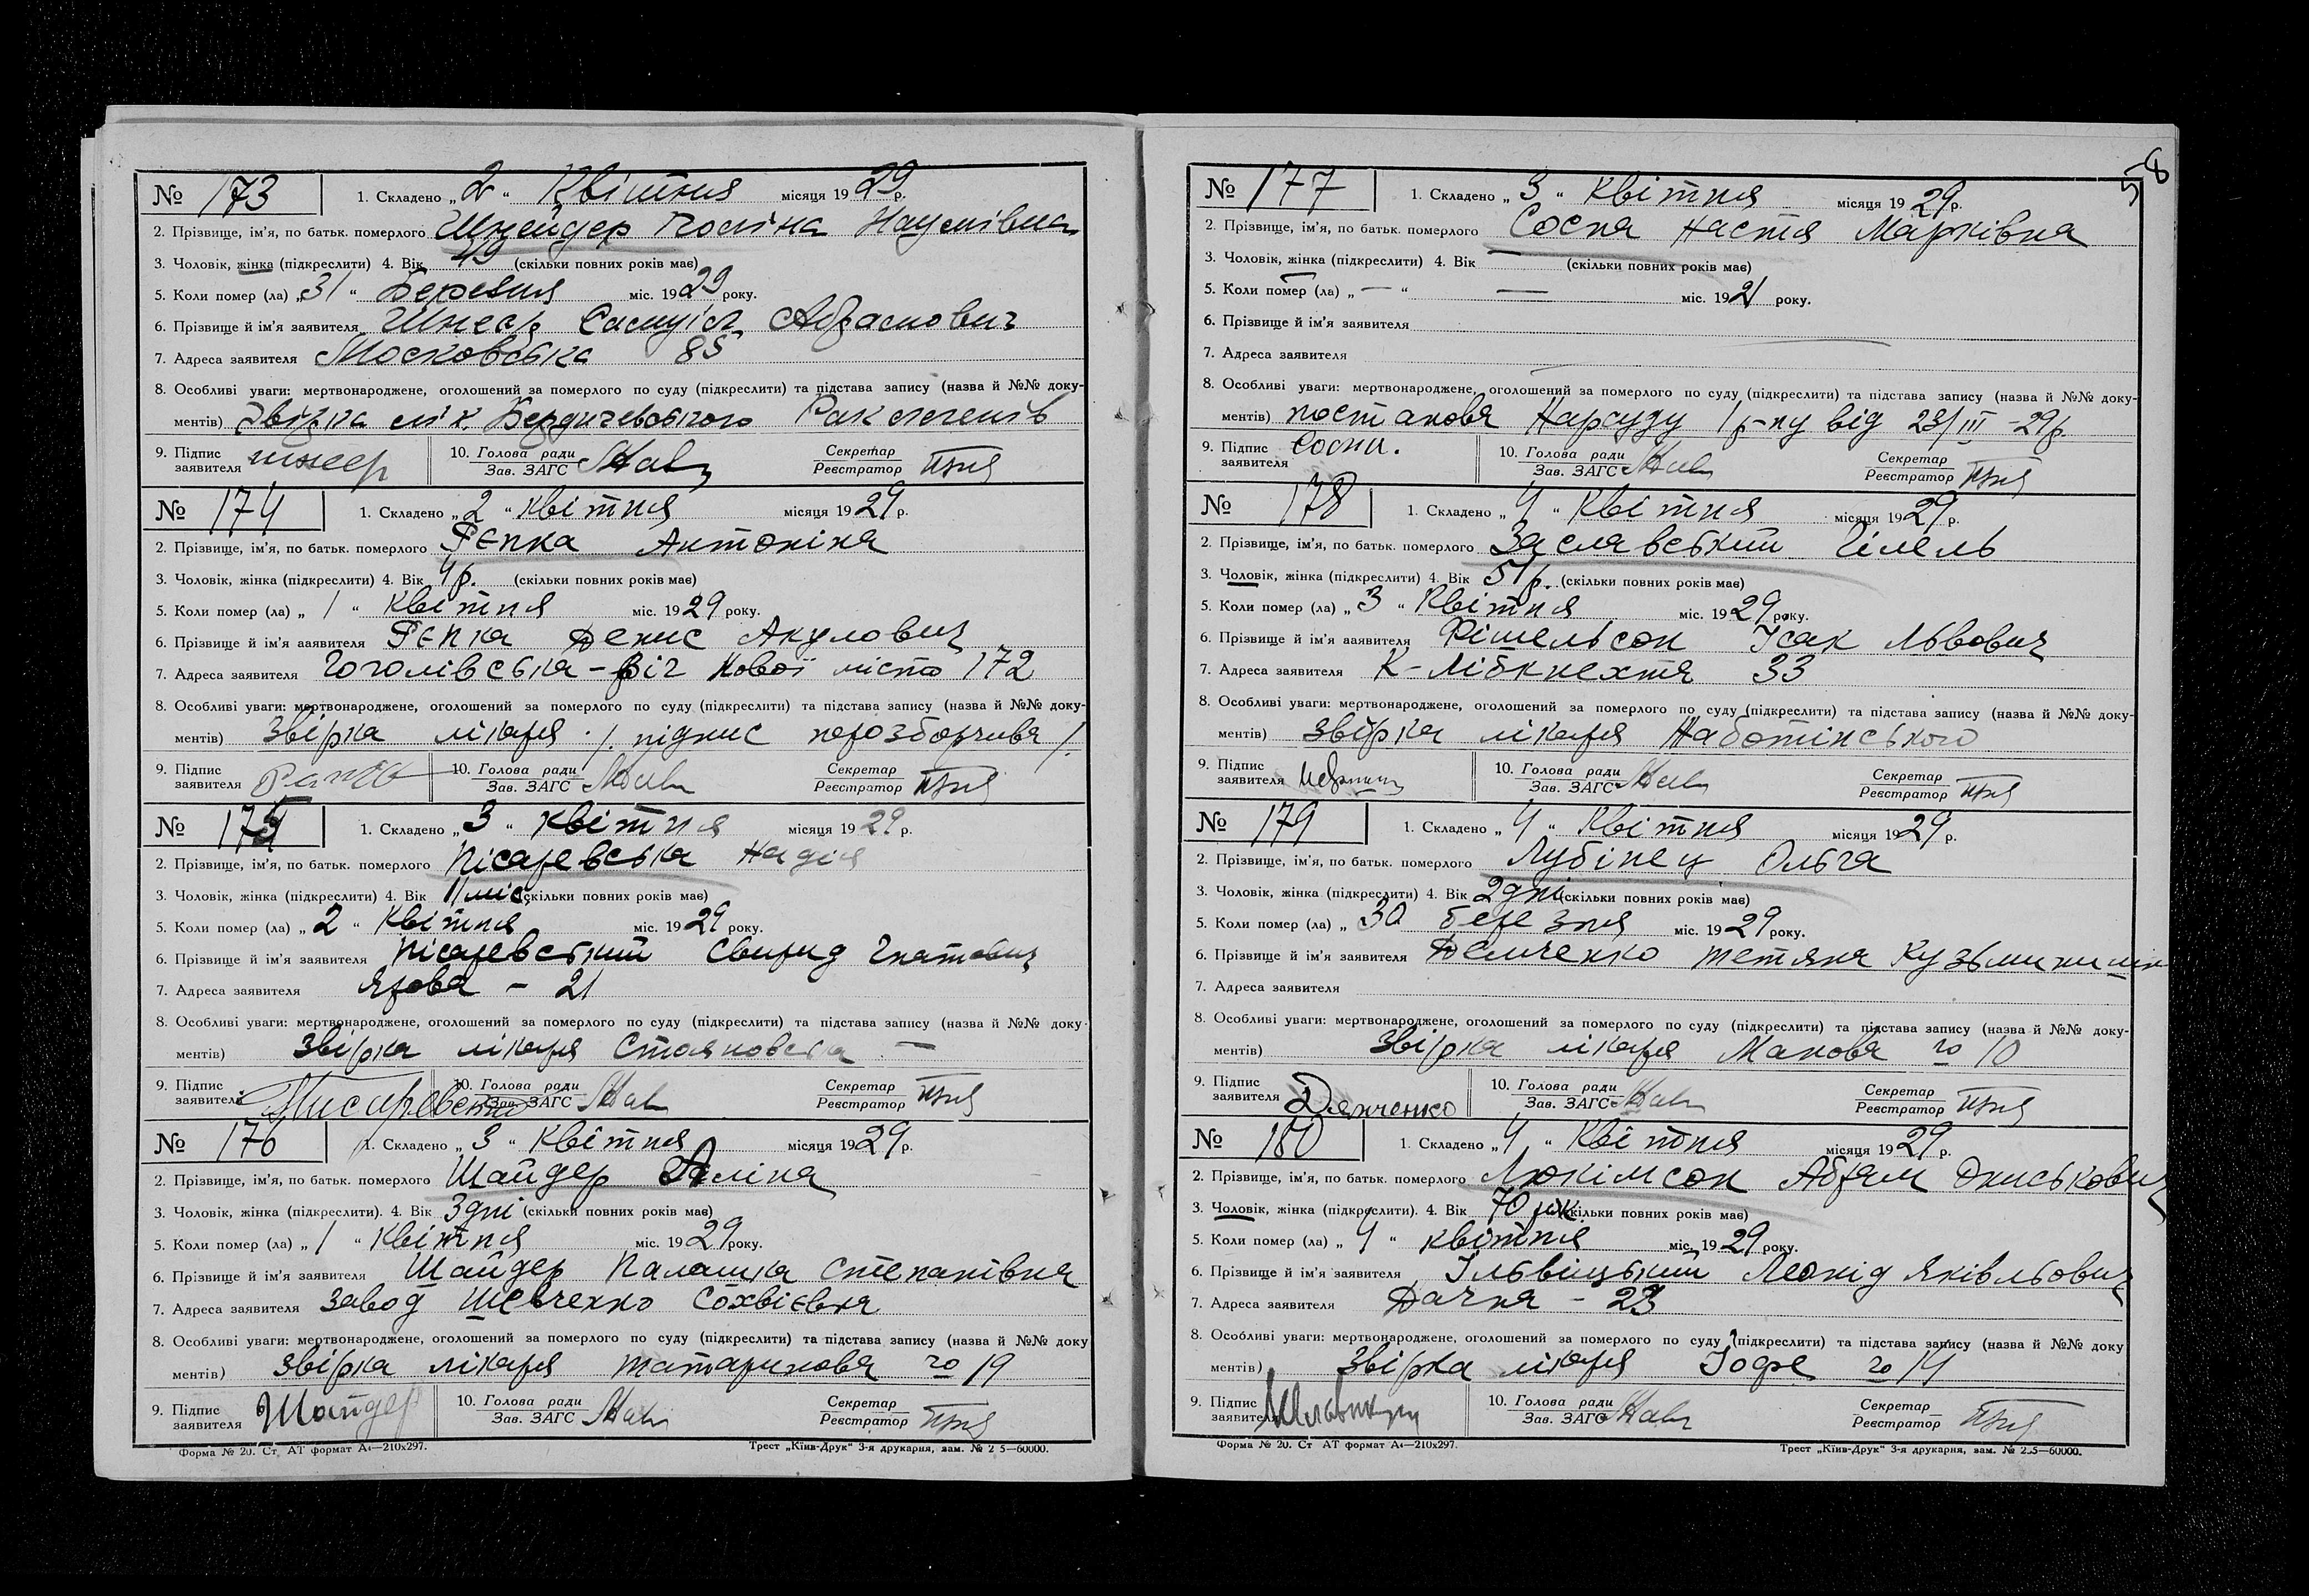 58
№ 173 1. Складено „2“ Квітня місяця 1929 р.
2. Прізвище, ім’я, по батьк. померлого Шнейдер Поліна Наумівна
3. Чоловік, жінка (підкреслити) 4. Вік 49 (скільки повних років має)
5. Коли помер (ла) „31“ Березня міс. 1929 року.
6. Прізвище й ім’я заявителя Шнеєр Самуіл Абрамович
7. Адреса заявителя Московська 85
8. Особливі уваги: мертвонароджене, оголошений за померлого по суду (підкреслити) та підстава запису (назва й №№ доку-
ментів) Звірка лік. Бердичевського Рак легенів
9. Підпис заявителя Шнеер 10. Голова ради Зав. ЗАГС Секретар Реєстратор
№ 174 1. Складено „2“ Квітня місяця 1929 р.
2. Прізвище, ім’я, по батьк. померлого Рєпка Антоніна
3. Чоловік, жінка (підкреслити) 4. Вік 4 р. (скільки повних років має)
5. Коли помер (ла) „1“ Квітня міс. 1929 року.
6. Прізвище й ім’я заявителя Рєпка Денис Акулович
7. Адреса заявителя Гоголівська - ріг Нової місто 172
8. Особливі уваги: мертвонароджене, оголошений за померлого по суду (підкреслити) та підстава запису (назва й №№ доку-
ментів) Звірка лікаря /. підпис нерозборчива /
9. Підпис заявителя 10. Голова ради Зав. ЗАГС Секретар Реєстратор
№ 175 1. Складено „3“ Квітня місяця 1929 р.
2. Прізвище, ім’я, по батьк. померлого Пісаревська Надія
3. Чоловік, жінка (підкреслити) 4. Вік 11 міс. (скільки повних років має)
5. Коли помер (ла) „2“ Квітня міс. 1929 року.
6. Прізвище й ім’я заявителя Пісаревський Свирид Гнатович
7. Адреса заявителя Ярова - 21
8. Особливі уваги: мертвонароджене, оголошений за померлого по суду (підкреслити) та підстава запису (назва й №№ доку-
ментів) Звірка лікаря Стояновська —
9. Підпис заявителя Писаревский 10. Голова ради Зав. ЗАГС Секретар Реєстратор
№ 176 1. Складено „3“ Квітня місяця 1929 р.
2. Прізвище, ім’я, по батьк. померлого Шайдер Аліна
3. Чоловік, жінка (підкреслити). 4. Вік 3 дні (скільки повних років має)
5. Коли помер (ла) „1“ Квітня міс. 1929 року.
6. Прізвище й ім’я заявителя Шайдер Палашка Степанівна
7. Адреса заявителя Завод Шевченко Сохвієвка
8. Особливі уваги: мертвонароджене, оголошений за померлого по суду (підкреслити) та підстава запису (назва й №№ доку
ментів) Звірка лікаря Татаринова го 19
9. Підпис заявителя Шайдер 10. Голова ради Зав. ЗАГС Секретар Реєстратор
Форма № 20. Ст. АТ формат А₄—210х297. Трест „Київ-Друк“ 3-я друкарня, зам. № 2 5—60000.
№ 177 1. Складено „3“ Квітня місяця 1929 р.
2. Прізвище, ім’я, по батьк. померлого Сосна Настя Марківна
3. Чоловік, жінка (підкреслити) 4. Вік — (скільки повних років має)
5. Коли помер (ла) „—“ — міс. 1921 року.
6. Прізвище й ім’я заявителя
7. Адреса заявителя
8. Особливі уваги: мертвонароджене, оголошений за померлого по суду (підкреслити) та підстава запису (назва й №№ доку-
ментів) постанова Нарсуду 1 р-ну від 23/III -29 р.
9. Підпис заявителя Сосни. 10. Голова ради Зав. ЗАГС Секретар Реєстратор
№ 178 1. Складено „4“ Квітня місяця 1929 р.
2. Прізвище, ім’я, по батьк. померлого Заславський Гілель
3. Чоловік, жінка (підкреслити) 4. Вік 51 р. (скільки повних років має)
5. Коли помер (ла) „3“ Квітня міс. 1929 року.
6. Прізвище й ім’я заявителя Фішельсон Ісак Львович
7. Адреса заявителя К-Лібкнехтя 33
8. Особливі уваги: мертвонароджене, оголошений за померлого по суду (підкреслити) та підстава запису (назва й №№ доку-
ментів) Звірка лікаря Наботінського
9. Підпис заявителя 10. Голова ради Зав. ЗАГС Секретар Реєстратор
№ 179 1. Складено „4“ Квітня місяця 1929 р.
2. Прізвище, ім’я, по батьк. померлого Лубінец Ольга
3. Чоловік, жінка (підкреслити) 4. Вік 2 дні (скільки повних років має)
5. Коли помер (ла) „30 березня міс. 1929 року.
6. Прізвище й ім’я заявителя Демченко Тетяна
7. Адреса заявителя
8. Особливі уваги: мертвонароджене, оголошений за померлого по суду (підкреслити) та підстава запису (назва й №№ доку-
ментів) Звірка лікаря Макова го 10
9. Підпис заявителя 10. Голова ради Зав. ЗАГС Секретар Реєстратор
№ 180 1. Складено „4“ Квітня місяця 1929 р.
2. Прізвище, ім’я, по батьк. померлого Люкімсон Абрам
3. Чоловік, жінка (підкреслити). 4. Вік 70 рок (скільки повних років має)
5. Коли помер (ла) „4“ квітня міс. 1929 року.
6. Прізвище й ім’я заявителя Леонід
7. Адреса заявителя Дачна - 23
8. Особливі уваги: мертвонароджене, оголошений за померлого по суду (підкреслити) та підстава запису (назва й №№ доку
ментів) Звірка лікаря Іофе го 14
9. Підпис заявителя 10. Голова ради Зав. ЗАГС Секретар Реєстратор
Форма № 20. Ст АТ формат А₄—210х297. Трест „Київ-Друк“ 3-я друкарня, зам. № 2.5—60000.